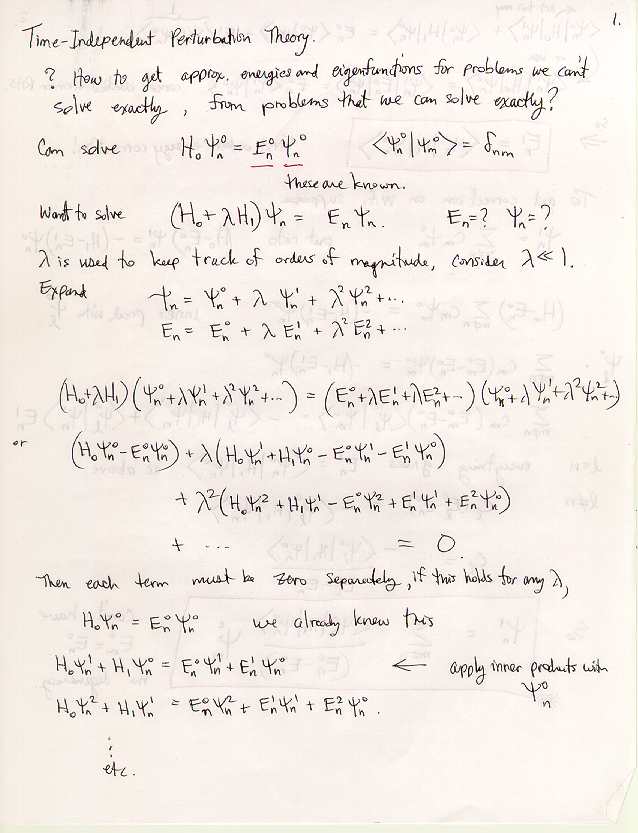 1.
Time-Independent Perturbation Theory.
? How to get approx. energies and eigenfunctions for problems we can't
solve exactly, from problems that we can solve exactly?
Can solve H₀Ψₙ⁰ = Eₙ⁰ Ψₙ⁰ <Ψₙ⁰|Ψₘ⁰> = δₙₘ
these are known.
Want to solve (H₀ + λH₁)Ψₙ = EₙΨₙ. Eₙ=? Ψₙ=?
λ is used to keep track of orders of magnitude, consider λ ≪ 1.
Expand Ψₙ = Ψₙ⁰ + λ Ψₙ¹ + λ²Ψₙ² + ···
Eₙ = Eₙ⁰ + λ Eₙ¹ + λ² Eₙ² + ···
(H₀+λH₁)(Ψₙ⁰+λΨₙ¹+λ²Ψₙ²+···) = (Eₙ⁰+λEₙ¹+λEₙ²+···)(Ψₙ⁰+λΨₙ¹+λ²Ψₙ²+···)
or (H₀Ψₙ⁰-Eₙ⁰Ψₙ⁰) + λ(H₀Ψₙ¹+H₁Ψₙ⁰ - Eₙ⁰Ψₙ¹ - Eₙ¹Ψₙ⁰)
+ λ²(H₀Ψₙ² + H₁Ψₙ¹ - Eₙ⁰Ψₙ² + Eₙ¹Ψₙ¹ + Eₙ²Ψₙ⁰)
+ ··· = 0.
Then each term must be zero separately, if this holds for any λ,
H₀Ψₙ⁰ = Eₙ⁰Ψₙ⁰ we already knew this
H₀Ψₙ¹ + H₁Ψₙ⁰ = Eₙ⁰Ψₙ¹ + Eₙ¹Ψₙ⁰ ← apply inner products with
Ψₙ⁰
H₀Ψₙ² + H₁Ψₙ¹ = Eₙ⁰Ψₙ² + Eₙ¹Ψₙ¹ + Eₙ²Ψₙ⁰.
⋮
etc.